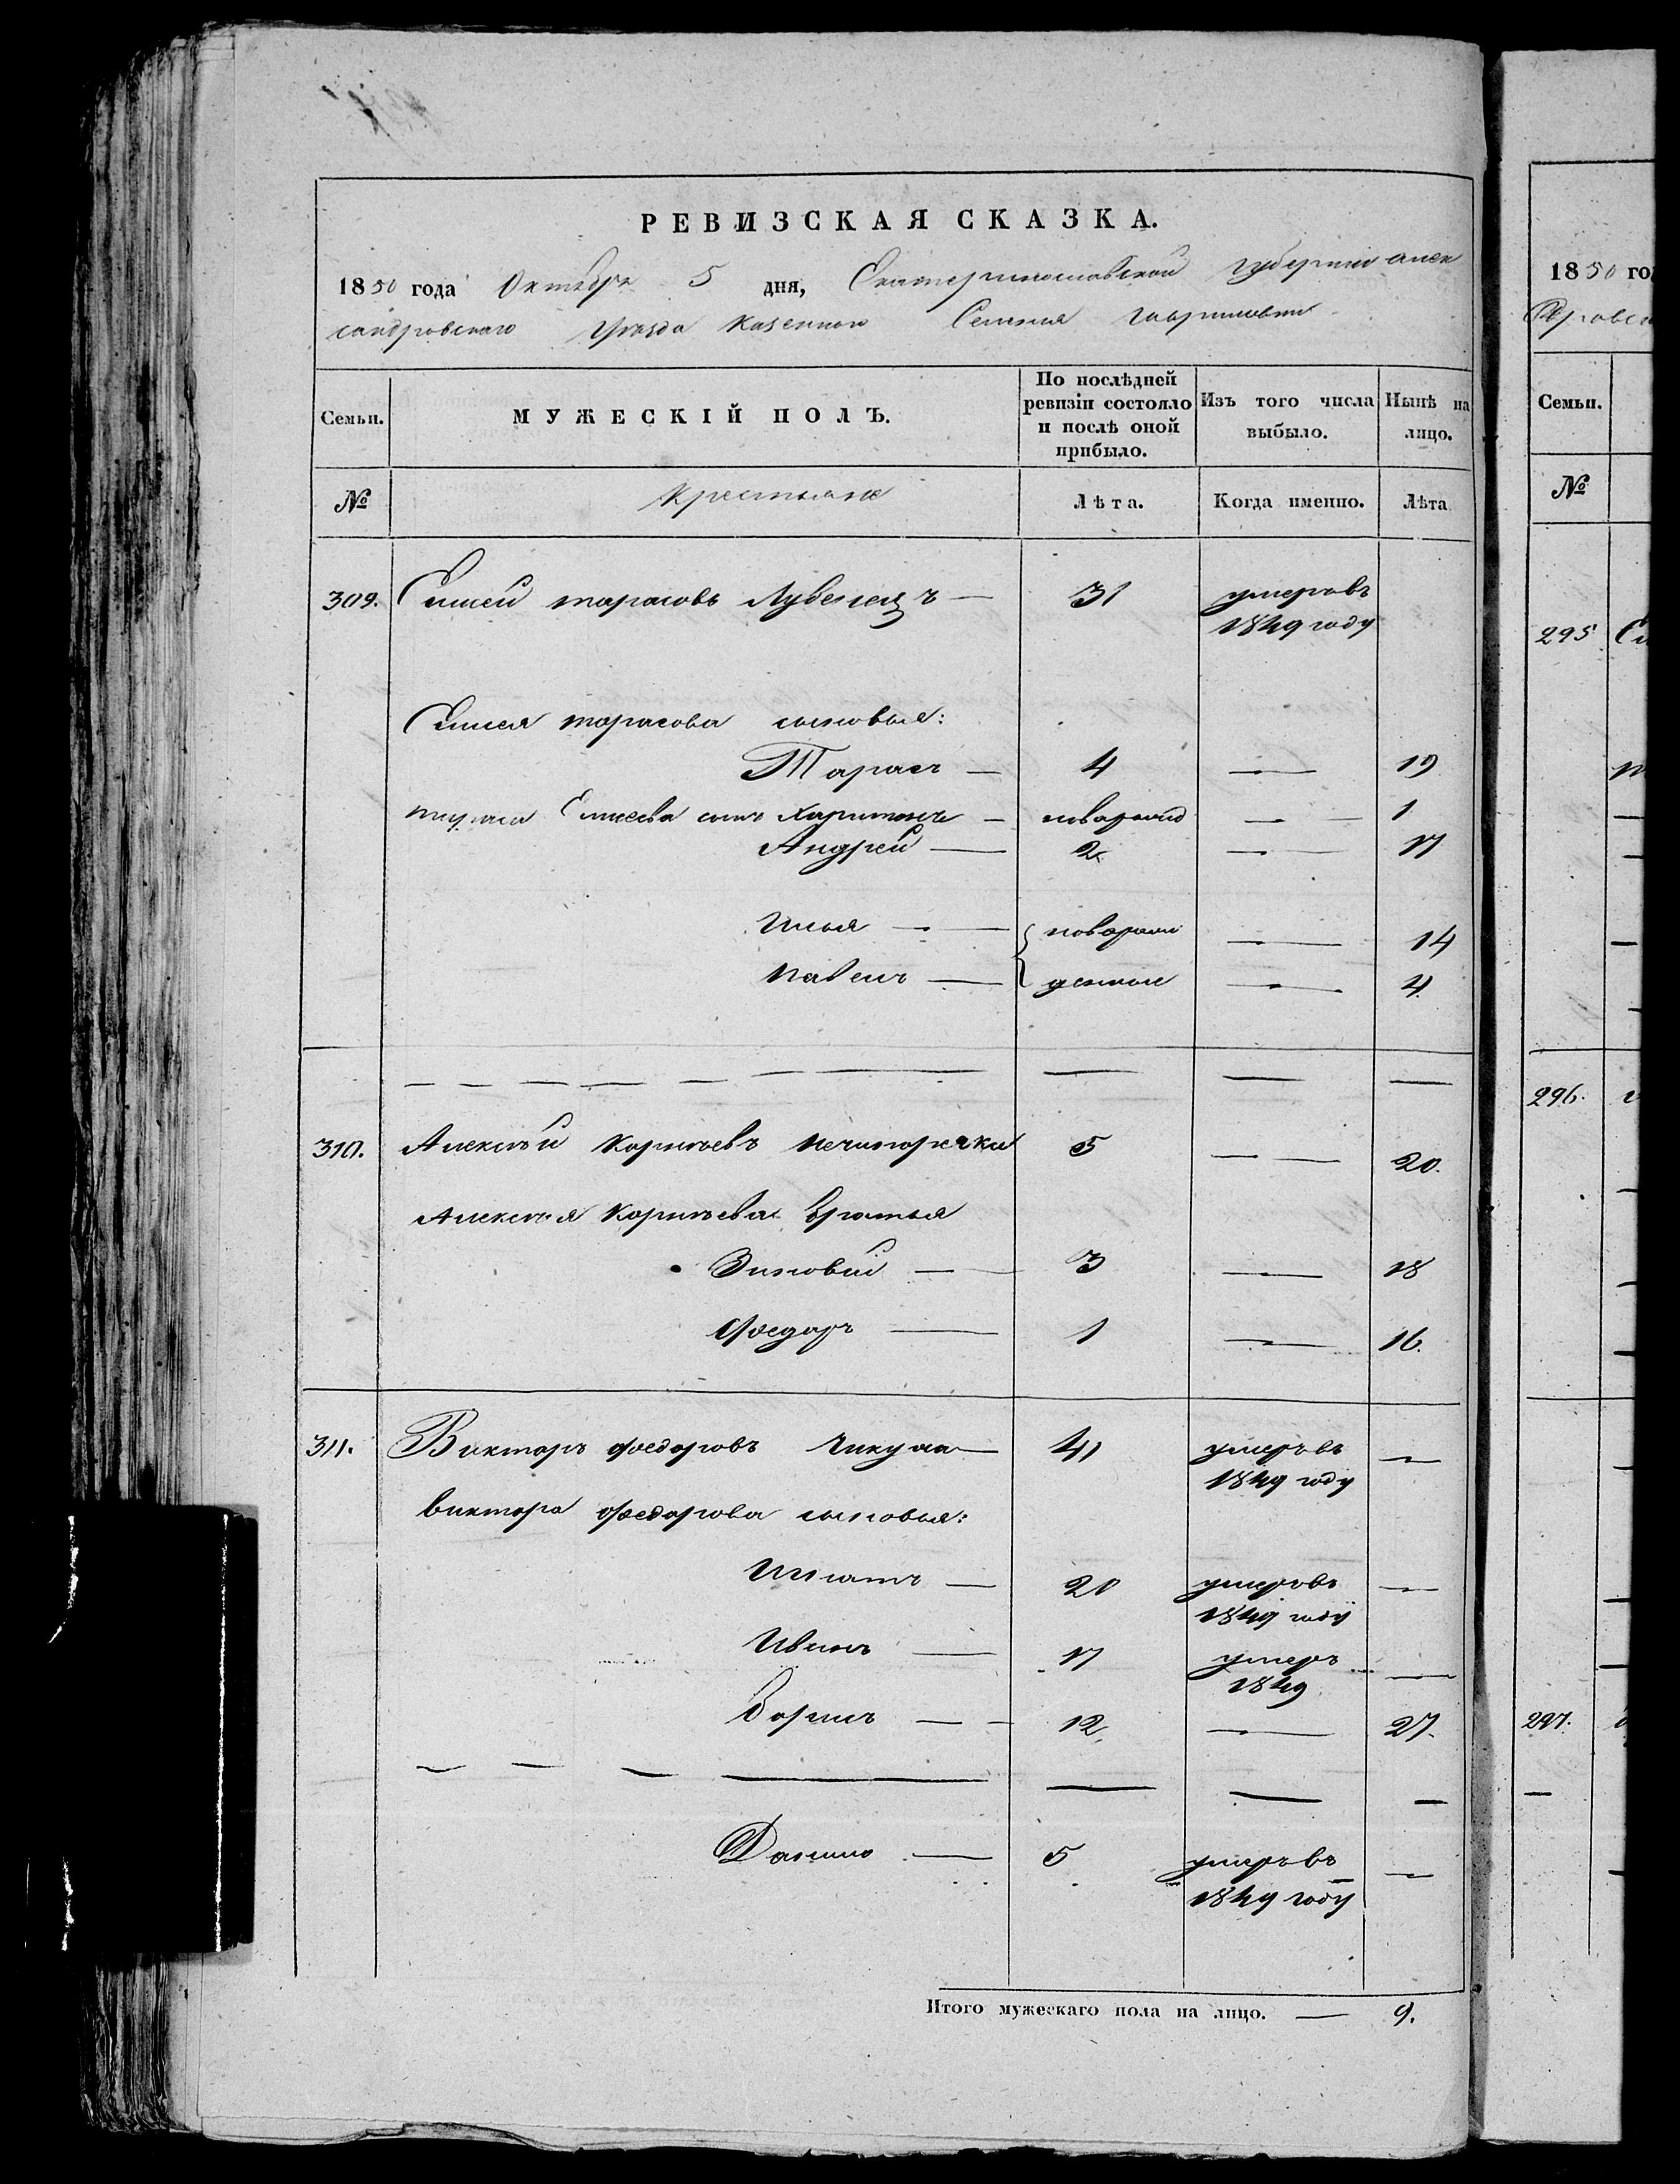 РЕВИЗСКАЯ СКАЗКА.
1850 года Октября 5 дня, Екатеринославской губерніи алек
сандровскаго уезда казенного Селения гавриловки
Семьи. МУЖЕСКІЙ ПОЛЪ. По послѣдней ревизіи состояло и послѣ оной прибыло. Изъ того числа выбыло. Нынѣ на лицо.
№ крестьяне Лѣта. Когда именно. Лѣта
309. Елисей тарасовъ Лубенецъ — 31 умеръ въ
1849 году
Елисея тарасова сыновья:
Тарасъ — 4 — 19
тараса Елисеева сынъ Харитонъ — новорожд — 1
Андрей — 2 — 17
Илья — новорож — 14
Павелъ — денные — 4.
310. Алексѣй Корнѣевъ 5 — 20.
Алексѣя Корнѣева братья
Зиновій — 3 — 18
Федоръ — 1 — 16.
311. Викторъ федоровъ Чикула — 41 умеръ въ —
1849 году
виктора федорова сыновья:
Игнатъ — 20 умеръ въ —
1849 году
Иванъ — 17 умеръ —
1849
Борисъ — 12 — 27.
Данило — 5 умеръ въ —
1849 году
Итого мужескаго пола на лицо. — 9.
1850 го
Семьи.
№
295
296.
297.